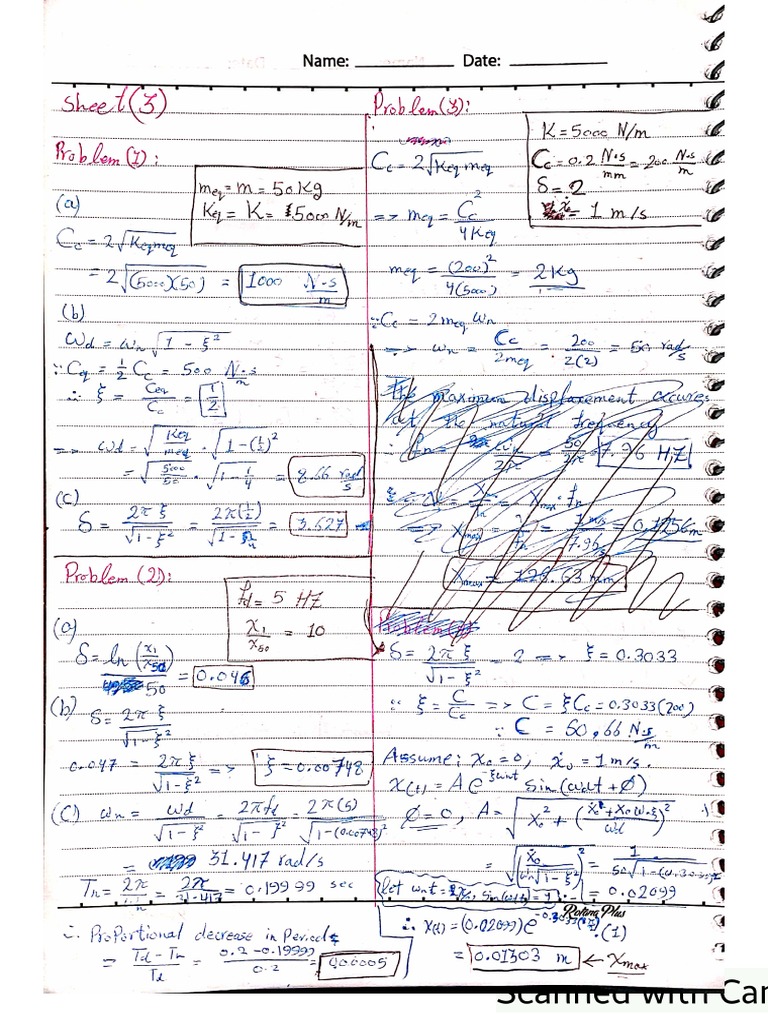 Name: __________ Date: __________
Sheet (3)
Problem (1):
meq = m = 50 Kg
Keq = K = 5000 N/m
(a)
Cc = 2√(Keq meq)
= 2√((5000)(50)) = 1000 N·s/m
(b)
ωd = ωn √(1 - ξ²)
∵ Cq = 1/2 Cc = 500 N·s/m
∴ ξ = Ceq/Cc = 1/2
=> ωd = √(Keq/meq) · √(1-(1/2)²)
= √(5000/50) · √(1-1/4) = 8.66 rad/s
(C)
δ = 2πξ/√(1-ξ²) = 2π(1/2)/√(1-1/4) = 3.627
Problem (2):
fd = 5 HZ
x1/x50 = 10
(a)
δ = ln (x1/x50)/50 = 0.046
(b)
δ = 2πξ/√(1-ξ²)
0.047 = 2πξ/√(1-ξ²) => ξ = 0.00748
(C) ωn = ωd/√(1-ξ²) = 2πfd/√(1-ξ²) = 2π(5)/√(1-(0.00748)²)
= 31.417 rad/s
Tn = 2π/ωn = 2π/31.417 = 0.19999 sec
∴ Proportional decrease in Period
= (Td - Tn)/Td = (0.2 - 0.19999)/0.2 = 0.00005
Problem (3):
K = 5000 N/m
Cc = 0.2 N·s/mm = 200 N·s/m
δ = 2
= 1 m/s
Cc = 2√(Keq meq)
=> meq = Cc²/4Keq
meq = (200)²/4(5000) = 2 Kg
∵ Cc = 2meq ωn
=> ωn = Cc/2meq = 200/2(2) = 50 rad/s
The maximum displacement occures
at the natural frequency
∴ fn = ωn/2π = 50/2π = 7.96 HZ
δ = 2πξ/√(1-ξ²) = 2 => ξ = 0.3033
∵ ξ = C/Cc => C = ξCc = 0.3033(200)
∴ C = 60.66 N·s/m
Assume: x0 = 0, ẋ0 = 1 m/s.
x(t) = A e^(-ξωnt) sin(ωdt + Ø)
Ø = 0, A = √(x0² + ((ẋ0 + x0ωnξ)/ωd)²)
= √((ẋ0/ωn√(1-ξ²))²) = 1/50√(1-(0.3033)²)
let ωnt = , sin(ωdt) = 1
= 0.02099
Rotana Plus
∴ x(t) = (0.02099) e · (1)
= 0.01303 m ← xmax
Scanned with Car